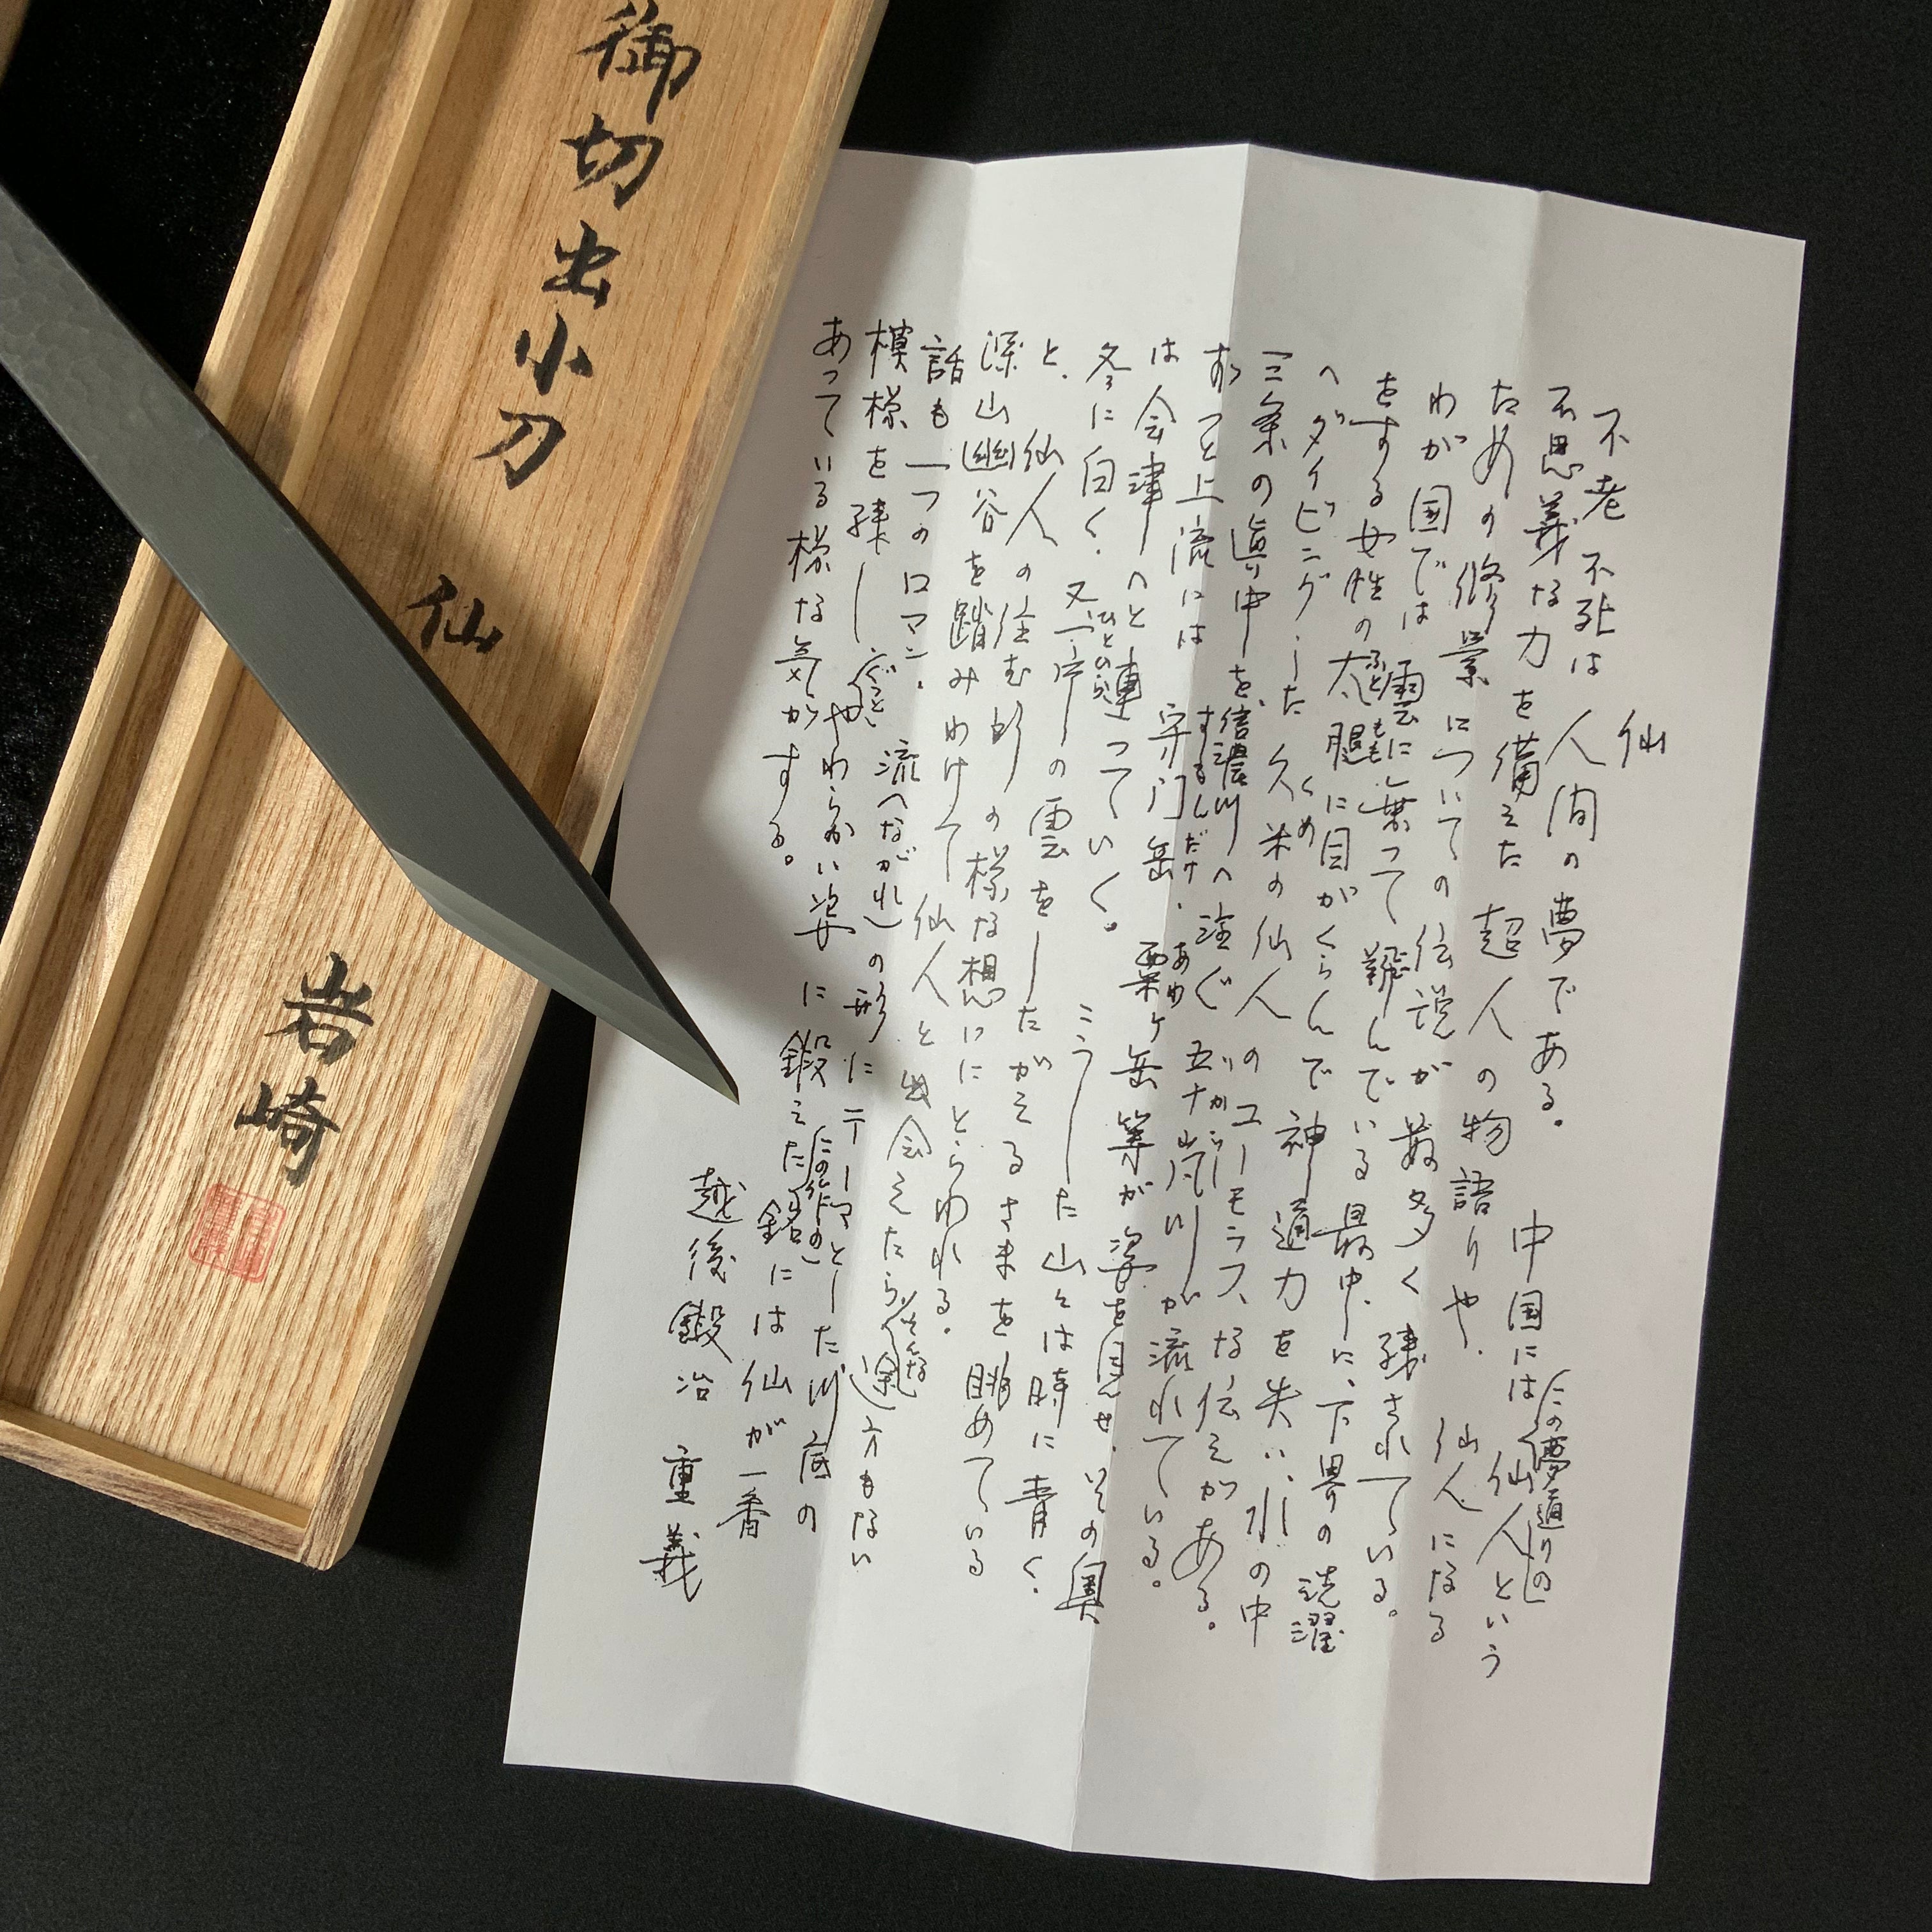 御切出小刀
仙
岩崎
仙
不老不死は人間の夢である。中国には(この夢通りの)仙人という
不思義な力を備えた超人の物語りや、仙人になる
ための修業についての伝説が数多く残されている。
わが国では、雲に乗って飛んでいる最中に、下界の洗濯
をする女性の太腿ふとももに目がくらんで神通力を失い、水の中
へダイビングした久米くめの仙人のユーモラスな伝えがある。
三条の眞中を、信濃川へ注ぐ五十嵐川いからしが流れている。
ずっと上流には守門岳すもんだけ、粟あわヶ岳等が姿を見せ、その奥
は会津へと連っていく。こうした山々は時に青く、
冬に白く、又一片ひとひらの雲をしたがえるさまを眺めている
と、仙人の住む所の様な想いにとらわれる。
深山幽谷を踏みわけて仙人と出会えたら(そんな)途方もない
話も一つのロマン、流(ながれ)の形にテーマとした川底の
模様を残し(ぐっと)やわらかい姿に鍛えた(この作の)銘には仙が一番
あっている様な気がする。
越後鍛冶 重義